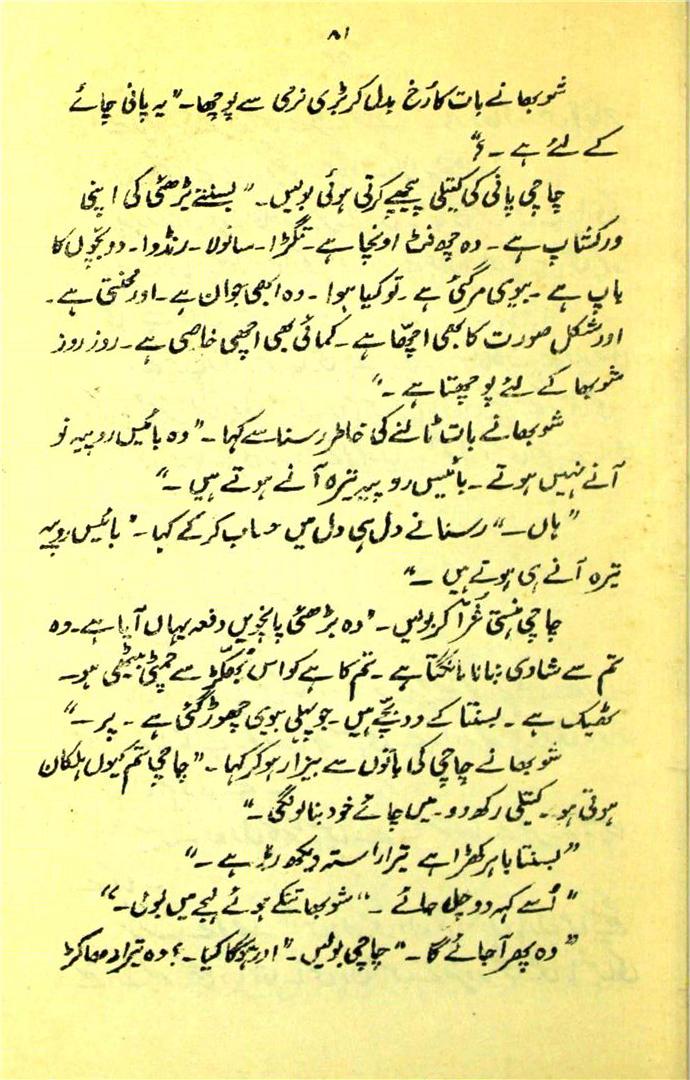 ۸۱
شوبھا نے بات کا رُخ بدل کر بڑی نرمی سے پوچھا۔ "یہ پانی چائے
کے لئے ہے ۔ ؟"
چاچی پانی کی کیتلی پیچھے کرتی ہوئی بولیں۔ "بسنتے بڑھئی کی اپنی
ورکشاپ ہے ۔ وہ چھ فٹ اونچا ہے ۔ تگڑا ۔ سانولا ۔ رنڈوا ۔ دو بچوں کا
باپ ہے ۔ بیوی مر گئی ہے ۔ تو کیا ہوا ۔ وہ ابھی جوان ہے ۔ اور محنتی ہے ۔
اور شکل صورت کا بھی اچھّا ہے ۔ کمائی بھی اچھی خاصی ہے ۔ روز روز
شوبھا کے لئے پوچھتا ہے ۔"
شوبھا نے بات ٹالنے کی خاطر رسنا سے کہا ۔ "وہ بائیس روپیہ نو
آنے نہیں ہوتے ۔ بائیس روپیہ تیرہ آنے ہوتے ہیں ۔"
"ہاں ۔" رسنا نے دل ہی دل میں حساب کر کے کہا ۔ "بائیس روپیہ
تیرہ آنے ہی ہوتے ہیں ۔"
چاچی ہنستی غُرّا کر بولیں ۔ "وہ بڑھئی پانچویں دفعہ یہاں آیا ہے ۔ وہ
تم سے شادی بنانا مانگتا ہے ۔ تم کاہے کو اس بھکّڑ سے چمٹی بیٹھی ہو ۔
ٹھیک ہے ۔ بسنتا کے دو بچّے ہیں ۔ جو پہلی بیوی چھوڑ گئی ہے ۔ پر ۔"
شوبھا نے چاچی کی باتوں سے بیزار ہو کر کہا ۔ "چاچی تم کیوں ہلکان
ہوتی ہو ۔ کیتلی رکھ دو ۔ میں چائے خود بنا لونگی ۔"
"بسنتا باہر کھڑا ہے تیرا راستہ دیکھ رہا ہے ۔"
"اُسے کہہ دو چل جائے ۔" شوبھا تنکے ہوئے لہجے میں بولی ۔"
"وہ پھر آ جائے گا ۔" چاچی بولیں ۔ "اور ہوگا کیا ۔ ؟ وہ تیرا